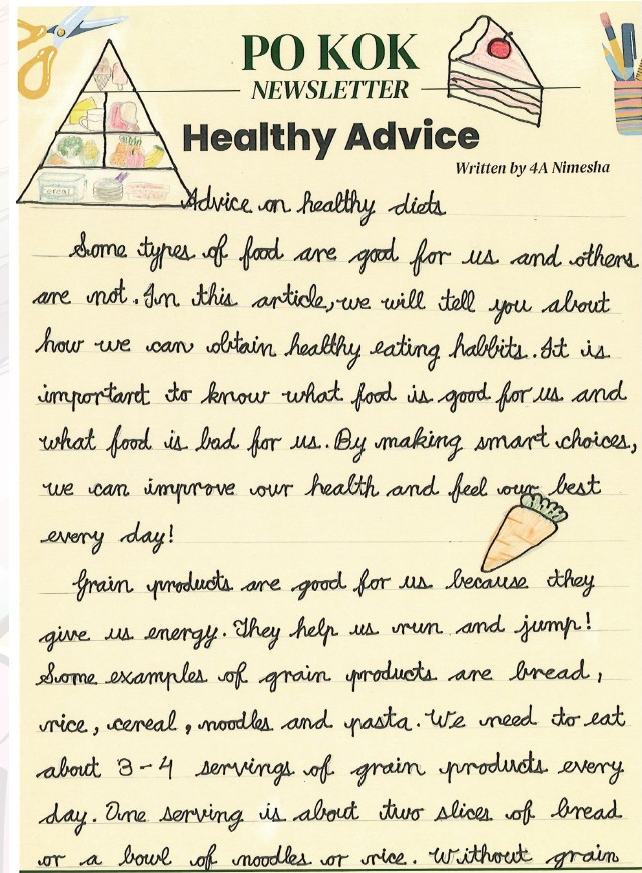 PO KOK
NEWSLETTER
Healthy Advice
Written by 4A Nimesha
Advice on healthy diets
Some types of food are good for us and others
are not. In this article, we will tell you about
how we can obtain healthy eating habbits. It is
important to know what food is good for us and
what food is bad for us. By making smart choices,
we can improve our health and feel our best
every day!
Grain products are good for us because they
give us energy. They help us run and jump!
Some examples of grain products are bread,
rice, cereal, noodles and pasta. We need to eat
about 3-4 servings of grain products every
day. One serving is about two slices of bread
or a bowl of noodles or rice. Without grain
cereal